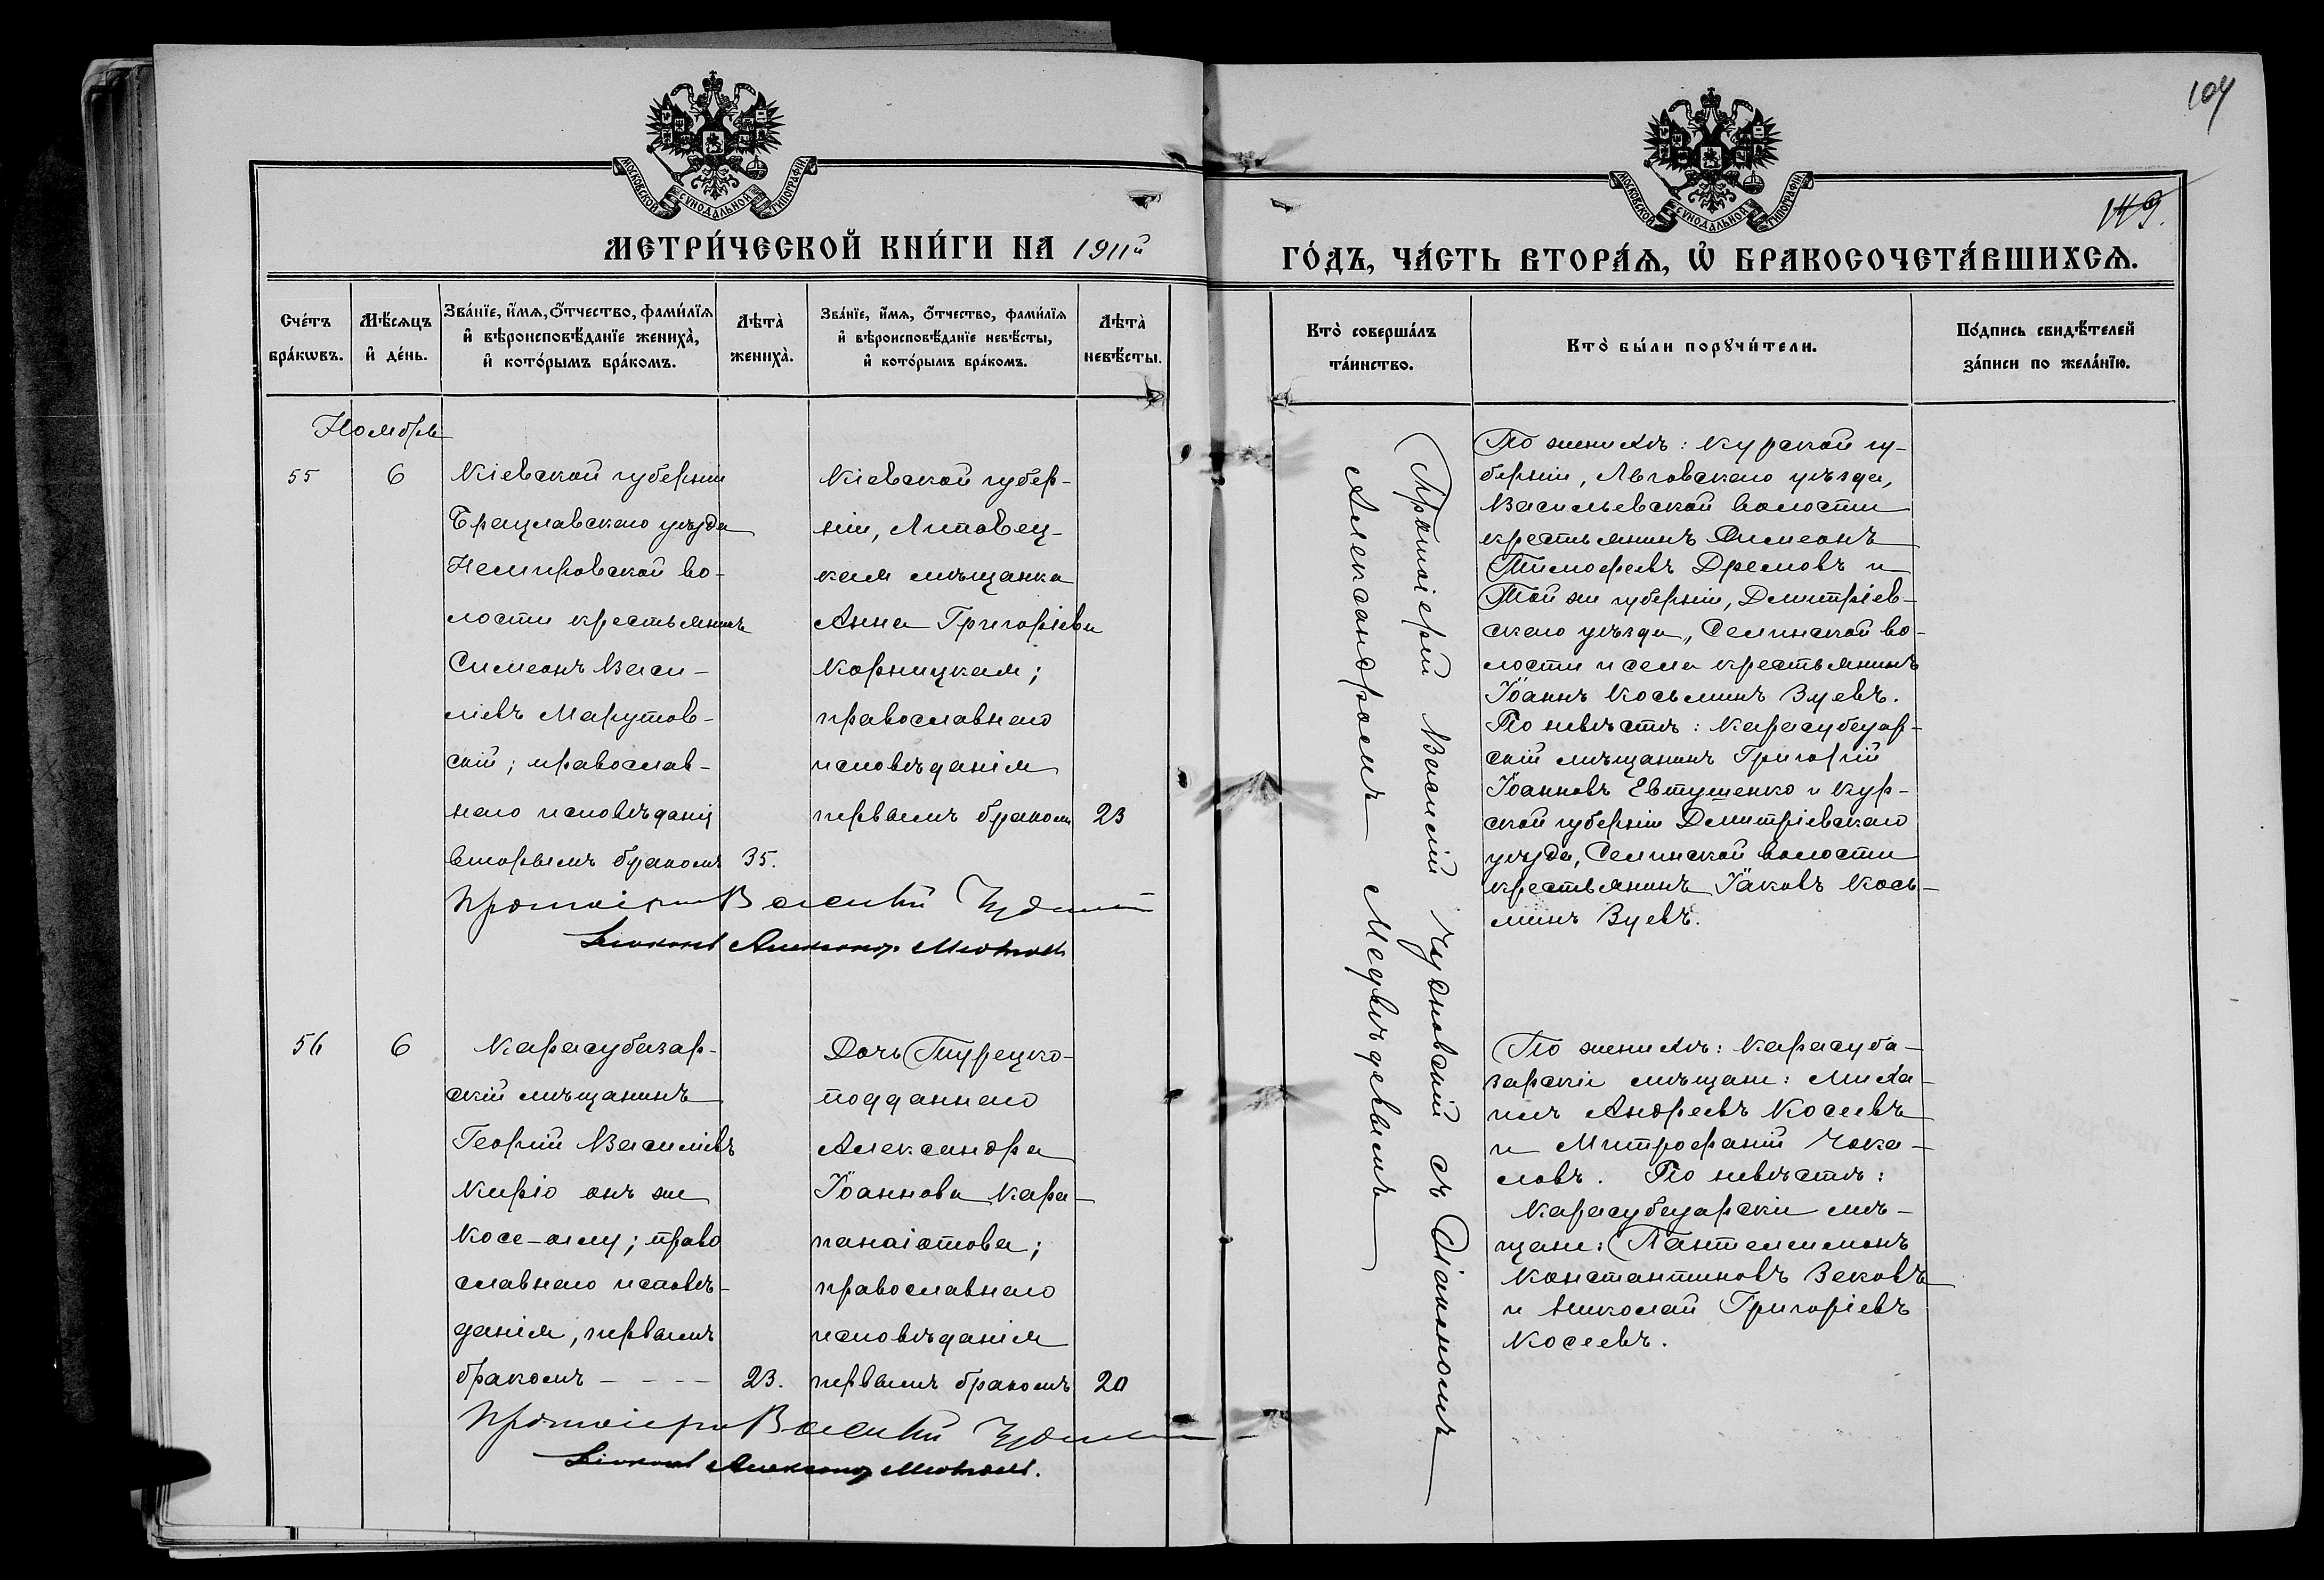 104
119.
МОСКОВСКОЙ СѴНОДАЛЬНОЙ ТИПОГРАФІИ
МОСКОВСКОЙ СѴНОДАЛЬНОЙ ТИПОГРАФІИ
МЕТРИ́ЧЕСКОЙ КНИ́ГИ НА 1911й
ГО́ДЪ, ЧА́СТЬ ВТОРА́Ѧ, Ѡ҆ БРАКОСОЧЕТА́ВШИХСѦ.
Сче́тъ
бра́кѡвъ.
Мѣ́сѧцъ
и҆ де́нь.
Зва́нїе, и҆́мѧ, Ѻ҆́тчество, фами́лїѧ
и҆ вѣроисповѣ́данїе жениха̀,
и҆ кото́рымъ бра́комъ.
Лѣта̀
жениха̀.
Зва́нїе, и҆́мѧ, Ѻ҆́тчество, фами́лїѧ
и҆ вѣроисповѣ́данїе невѣ́сты,
и҆ кото́рымъ бра́комъ.
Лѣта̀
невѣ́сты.
Кто̀ соверша́лъ
та́инство.
Кто̀ бы́ли порꙋчи́тели.
По́дпись свидѣ́телей
за́писи по жела́нїю.
Ноябрь
55
6
Кіевской губерніи
Брацлавскаго уѣзда
Немировской во-
лости крестьянинъ
Симеонъ Васи-
ліевъ Марутов-
скій; православ-
наго исповѣданія
вторымъ бракомъ 35.
Кіевской губер-
ніи, Липовец-
кая мѣщанка
Анна Григоріева
Корницкая;
православнаго
исповѣданія
первымъ бракомъ 23
Протоіерей Василій
Діаконъ Александръ Медведевъ
Протоіерей Василій Чудновскій съ Діакономъ
Александромъ Медвѣдевымъ
По женихѣ: Курской гу-
берніи, Льговскаго уѣзда,
Васильевской волости
крестьянинъ Симеонъ
Тимофеевъ Дремовъ и
Той же губерніи, Димитріев-
скаго уѣзда, Селинской во-
лости и села крестьянинъ
Іоаннъ Косьминъ Зуевъ.
По невѣстѣ: Карасубазар-
скій мѣщанинъ Григорій
Іоанновъ Евтушенко и Кур-
ской губерніи Димитріевскаго
уѣзда, Селинской волости
крестьянинъ Іаковъ Кось-
минъ Зуевъ.
56
6
Карасубазар-
скій мѣщанинъ
Георгій Василіевъ
Киріо онъ же
Косе-оглу; право
славнаго исповѣ-
данія, первымъ
бракомъ - - - - 23.
Дочь Турецко-
подданнаго
Александра
Іоаннова Кара-
панаіотова;
православнаго
исповѣданія
первымъ бракомъ 20
Протоіерей Василій
Діаконъ Александръ Медведевъ.
По женихѣ: Карасуба-
зарскіе мѣщане: Миха-
илъ Андреевъ Косеевъ
и Митрофаній Чока-
ловъ. По невѣстѣ:
Карасубазарскіе мѣ-
щане: Пантелеимонъ
Константиновъ Зековъ
и Николай Григоріевъ
Косеевъ.